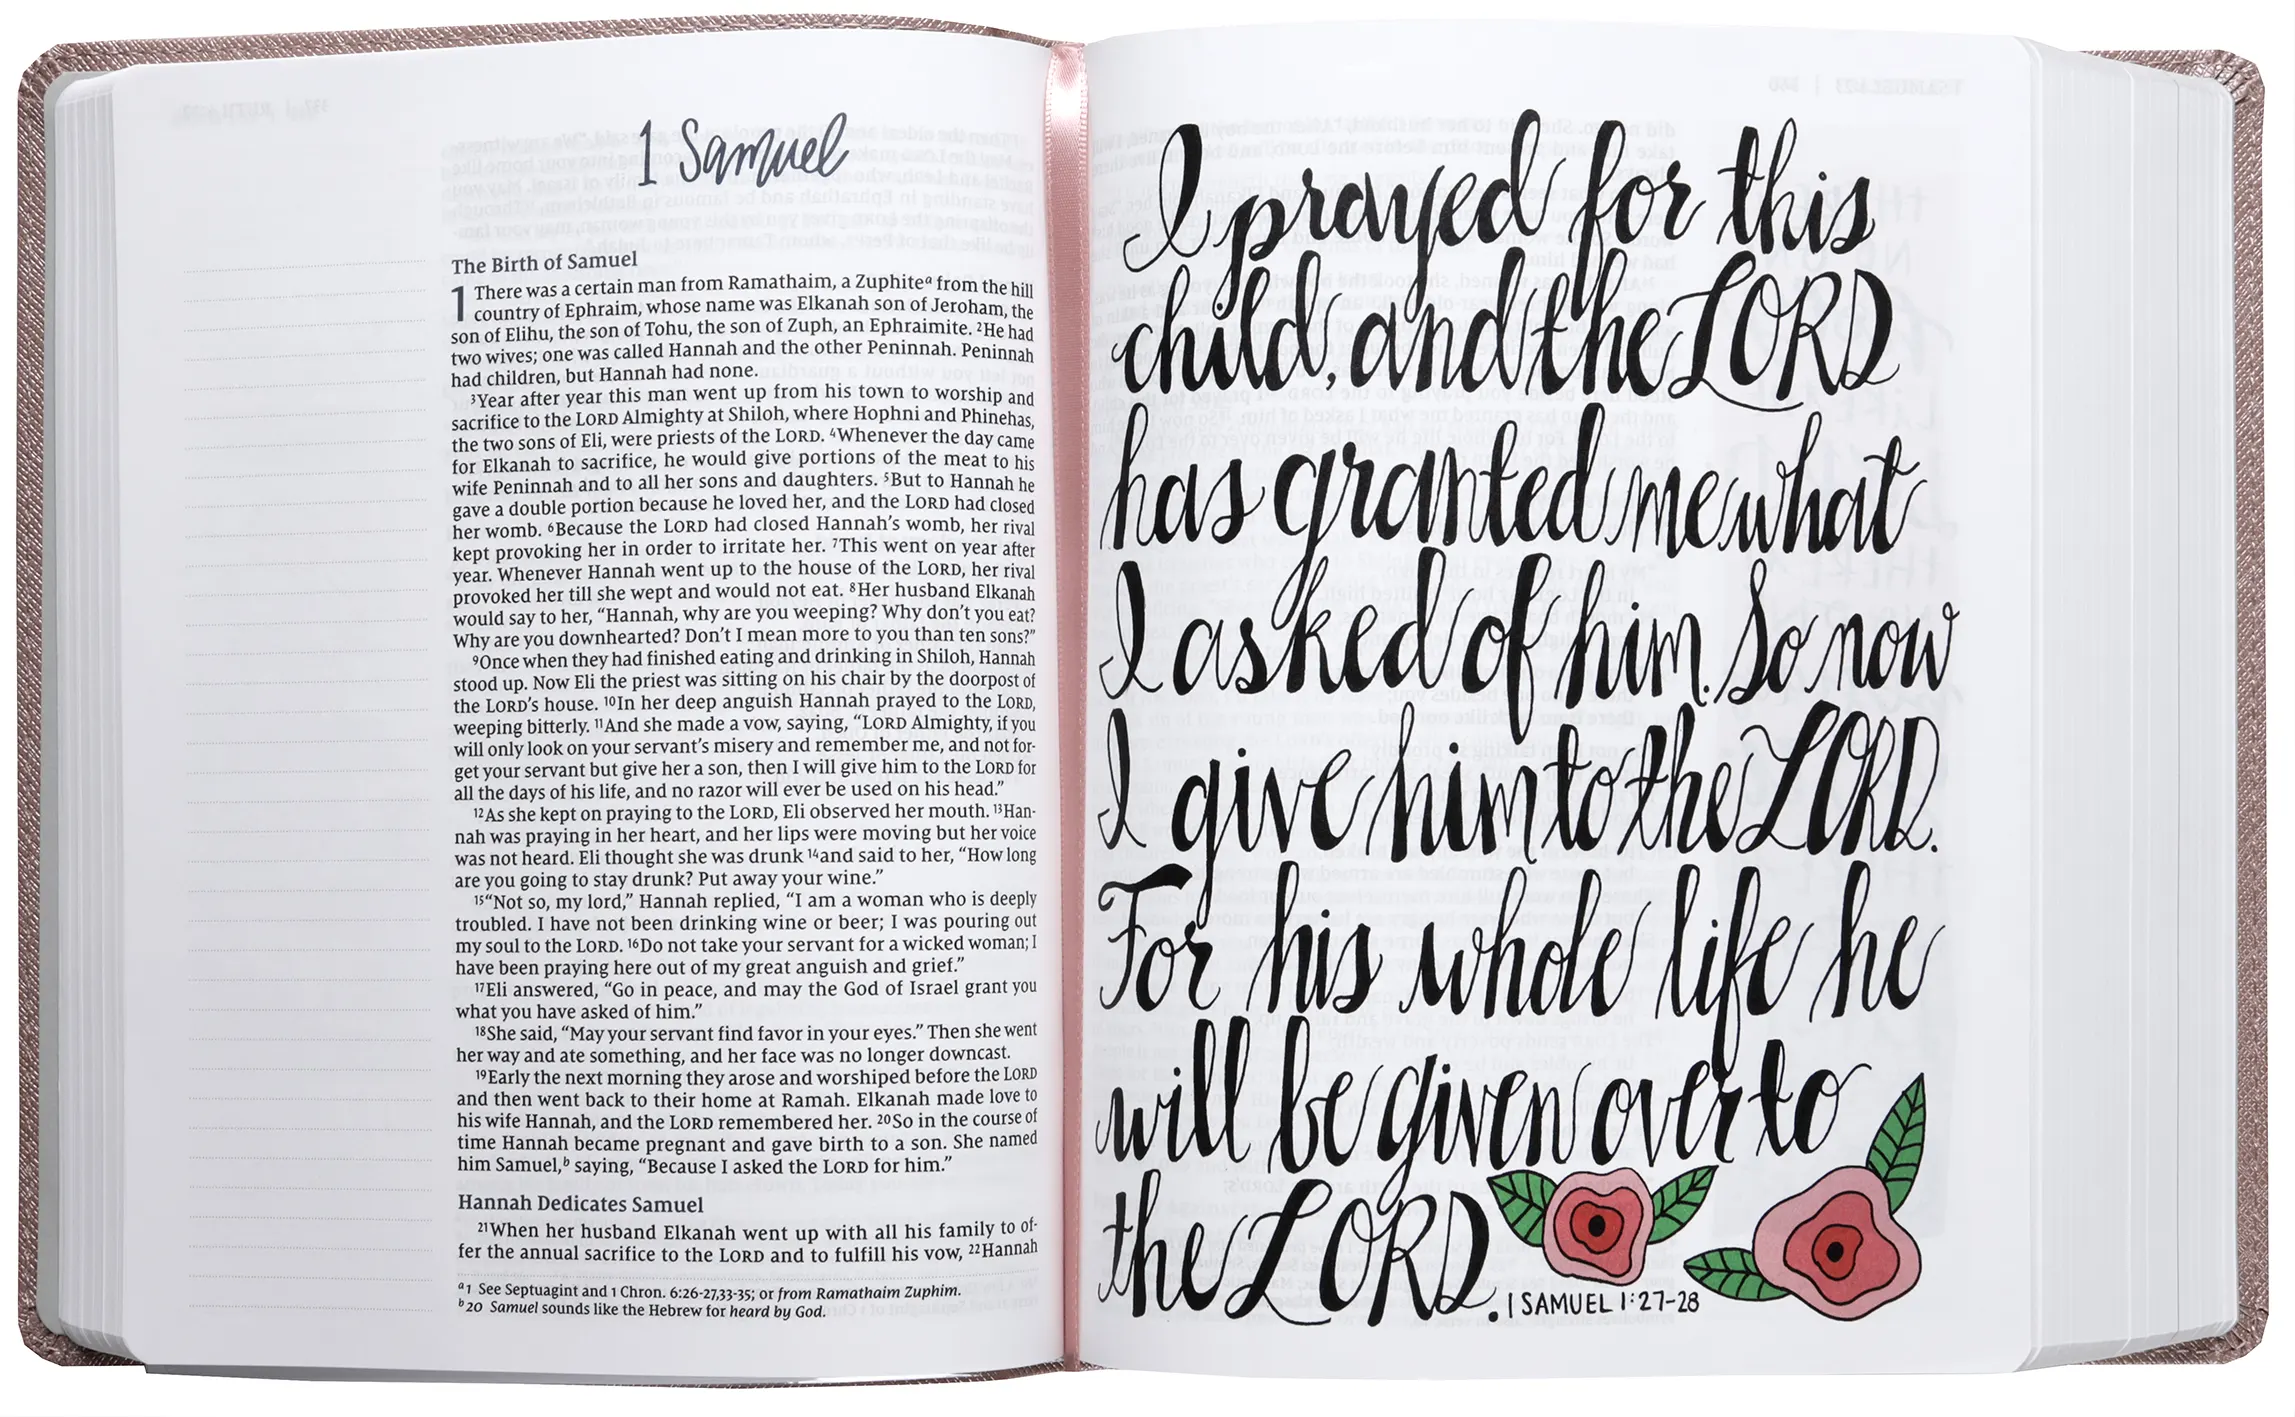 1 Samuel
The Birth of Samuel
1 There was a certain man from Ramathaim, a Zuphiteᵃ from the hill
country of Ephraim, whose name was Elkanah son of Jeroham, the
son of Elihu, the son of Tohu, the son of Zuph, an Ephraimite. ²He had
two wives; one was called Hannah and the other Peninnah. Peninnah
had children, but Hannah had none.
³Year after year this man went up from his town to worship and
sacrifice to the LORD Almighty at Shiloh, where Hophni and Phinehas,
the two sons of Eli, were priests of the LORD. ⁴Whenever the day came
for Elkanah to sacrifice, he would give portions of the meat to his
wife Peninnah and to all her sons and daughters. ⁵But to Hannah he
gave a double portion because he loved her, and the LORD had closed
her womb. ⁶Because the LORD had closed Hannah's womb, her rival
kept provoking her in order to irritate her. ⁷This went on year after
year. Whenever Hannah went up to the house of the LORD, her rival
provoked her till she wept and would not eat. ⁸Her husband Elkanah
would say to her, “Hannah, why are you weeping? Why don't you eat?
Why are you downhearted? Don't I mean more to you than ten sons?”
⁹Once when they had finished eating and drinking in Shiloh, Hannah
stood up. Now Eli the priest was sitting on his chair by the doorpost of
the LORD's house. ¹⁰In her deep anguish Hannah prayed to the LORD,
weeping bitterly. ¹¹And she made a vow, saying, “LORD Almighty, if you
will only look on your servant's misery and remember me, and not for-
get your servant but give her a son, then I will give him to the LORD for
all the days of his life, and no razor will ever be used on his head.”
¹²As she kept on praying to the LORD, Eli observed her mouth. ¹³Han-
nah was praying in her heart, and her lips were moving but her voice
was not heard. Eli thought she was drunk ¹⁴and said to her, “How long
are you going to stay drunk? Put away your wine.”
¹⁵“Not so, my lord,” Hannah replied, “I am a woman who is deeply
troubled. I have not been drinking wine or beer; I was pouring out
my soul to the LORD. ¹⁶Do not take your servant for a wicked woman; I
have been praying here out of my great anguish and grief.”
¹⁷Eli answered, “Go in peace, and may the God of Israel grant you
what you have asked of him.”
¹⁸She said, “May your servant find favor in your eyes.” Then she went
her way and ate something, and her face was no longer downcast.
¹⁹Early the next morning they arose and worshiped before the LORD
and then went back to their home at Ramah. Elkanah made love to
his wife Hannah, and the LORD remembered her. ²⁰So in the course of
time Hannah became pregnant and gave birth to a son. She named
him Samuel,ᵇ saying, “Because I asked the LORD for him.”
Hannah Dedicates Samuel
²¹When her husband Elkanah went up with all his family to of-
fer the annual sacrifice to the LORD and to fulfill his vow, ²²Hannah
ᵃ1 See Septuagint and 1 Chron. 6:26-27,33-35; or from Ramathaim Zuphim.
ᵇ20 Samuel sounds like the Hebrew for heard by God.
I prayed for this
child, and the LORD
has granted me what
I asked of him. So now
I give him to the LORD.
For his whole life he
will be given over to
the LORD.
1 SAMUEL 1:27-28